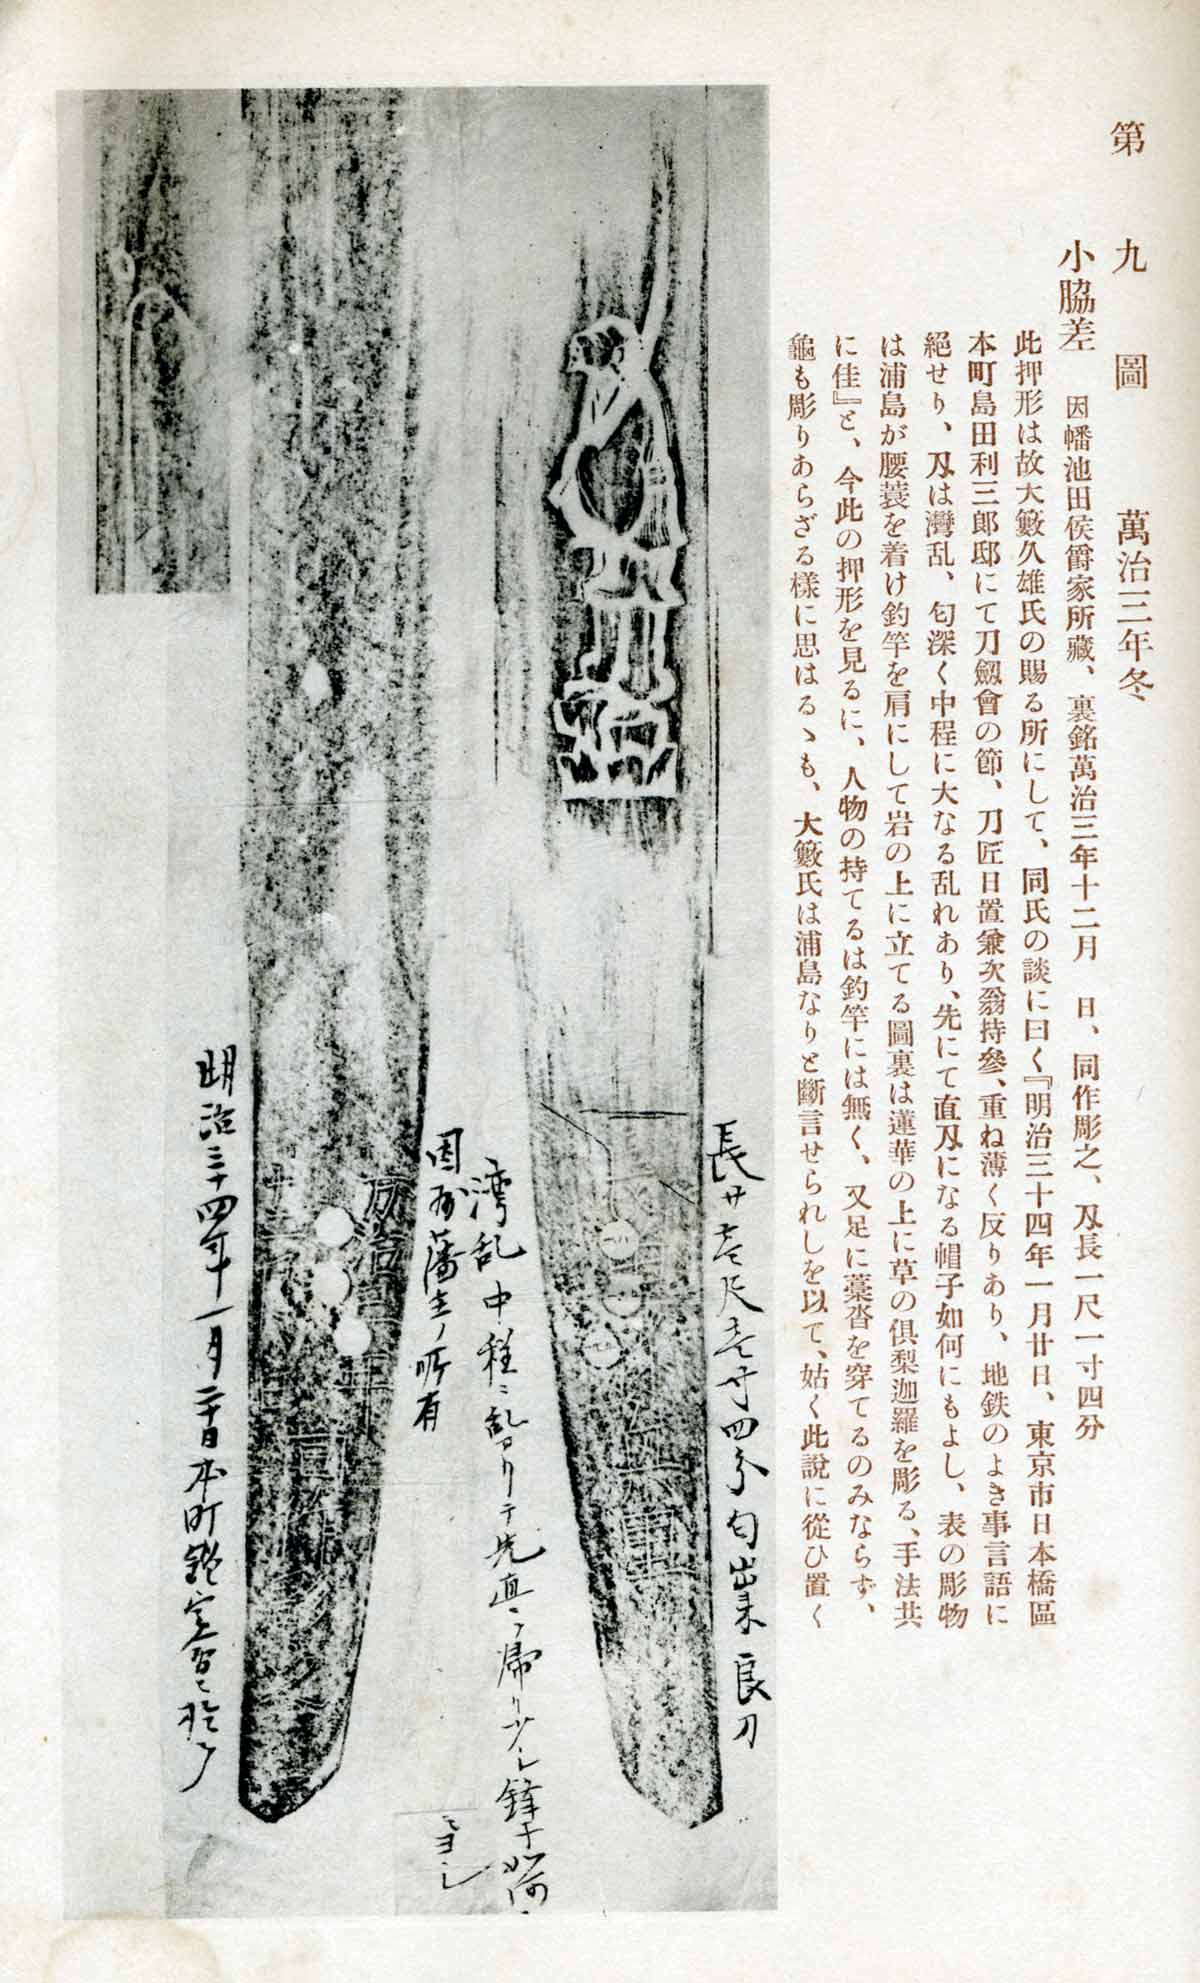 第九圖　萬治三年冬
小脇差　因幡池田侯爵家所藏、裏銘萬治三年十二月　日、同作彫之、刄長一尺一寸四分
此押形は故大籔久雄氏の賜る所にして、同氏の談に曰く『明治三十四年一月廿日、東京市日本橋區
本町島田利三郎邸にて刀劔會の節、刀匠日置兼次翁持參、重ね薄く反りあり、地鉄のよき事言語に
絕せり、刄は灣乱、匂深く中程に大なる乱れあり、先にて直刄になる帽子如何にもよし、表の彫物
は浦島が腰蓑を着け釣竿を肩にして岩の上に立てる圖裏は蓮華の上に草の俱梨迦羅を彫る、手法共
に佳』と、今此の押形を見るに、人物の持てるは釣竿には無く、又足に藁沓を穿てるのみならず、
龜も彫りあらざる樣に思はるゝも、大籔氏は浦島なりと斷言せられしを以て、姑く此說に從ひ置く
長サ壱尺壱寸四分匂出来良刀
湾乱中程ニ乱アリテ先直ニ帰リ少シ鋒子如何ニ
モヨシ
因州藩主ノ所有
萬治三年
十二
同作
明治三十四年一月二十日本町鑑定会ニ於テ